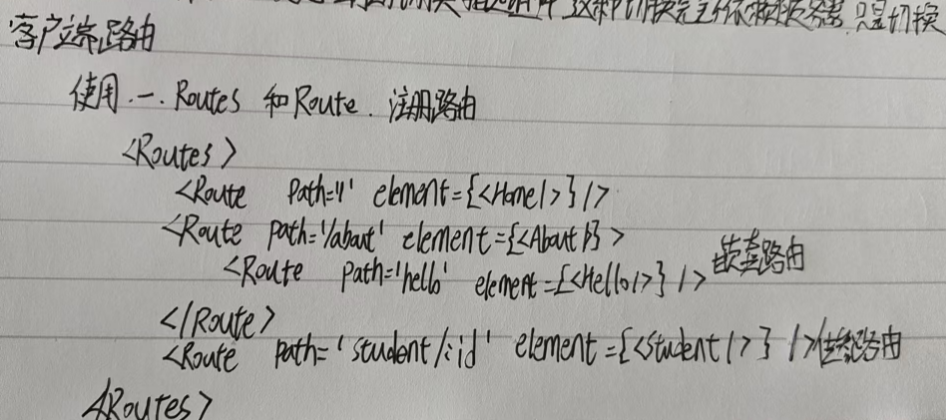 这种切换完全不依赖服务器,只是切换
客户端路由
使用.一. Routes 和Route. 注册路由
<Routes>
<Route path='/' element={<Home/>}/>
<Route path='/about' element={<About/>}>
<Route path='hello' element={<Hello/>} /> 嵌套路由
</Route>
<Route path='student/:id' element={<Student/>} /> 路由
</Routes>